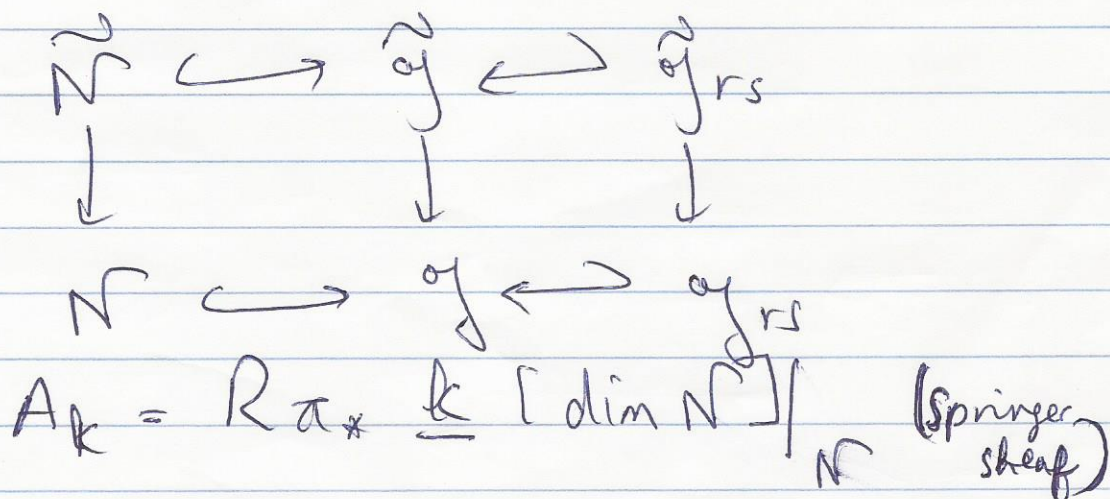 Ñ ↪ 𝔤̃ ↩ 𝔤̃ rs
↓ ↓ ↓
N ↪ 𝔤 ↩ 𝔤 rs
A_k = Rπ_* k [dim N]|_N (Springer sheaf)